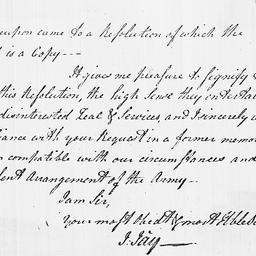 eupon came to a Resolution of which the
is a Copy---
It gives me pleasure to signify
this Resolution, the high Sense they entertai
disinterested Zeal & Services, and I sincerely w
iance with your Request in a former memo
n compatible with our circumstances and
ent Arrangement of the Army--
I am Sir,
your most Obedt. & most Hble Se
J. Jay